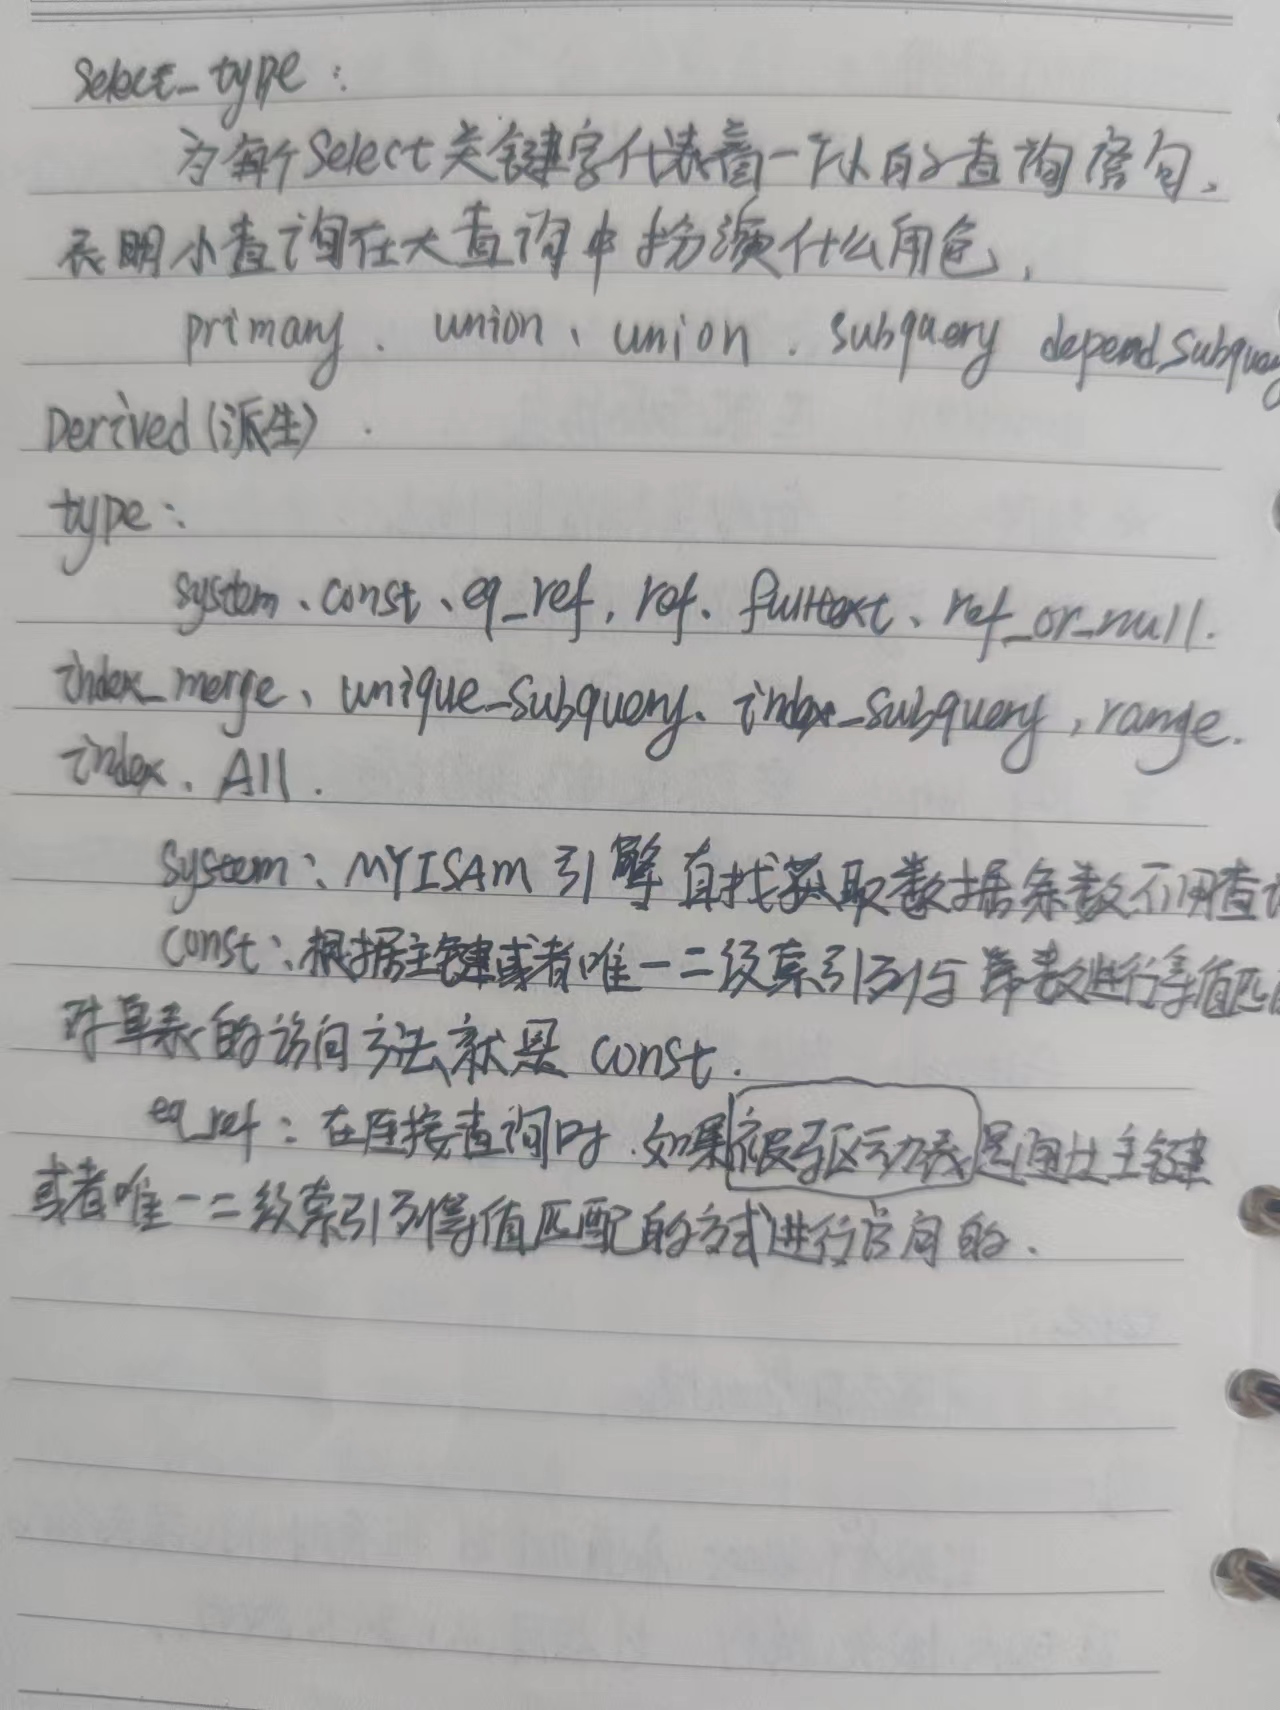 select_type:
为每个Select关键字代表着一个小的查询语句、
表明小查询在大查询中扮演什么角色,
primary、union、union、subquery depend subquery
Derived(派生).
type:
system、const、eq_ref, ref、fulltext、ref_or_null.
index_merge、unique_subquery、index_subquery, range.
index、All.
system: MYISAM 引擎 直找获取数据条数不用查
const: 根据主键或者唯一二级索引列与常数进行等值匹
对单表的访问方法就是 const.
eq_ref: 在连接查询时.如果被驱动表是通过主键
或者唯一二级索引列等值匹配的方式进行访问的.